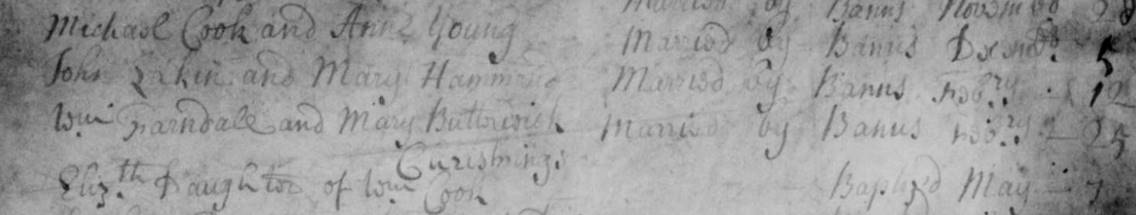 Married by Banns Novembr 28
Michael Cook and Anne Young Married by Banns Decembr. 5
John Lakin and Mary Hammond Married by Banns Febry. 12
Wm Farndale and Mary Butterwick Married by Banns Febry. 25
Curistnings
Eliz.th Daughter of Wm Cook Baptized May 7